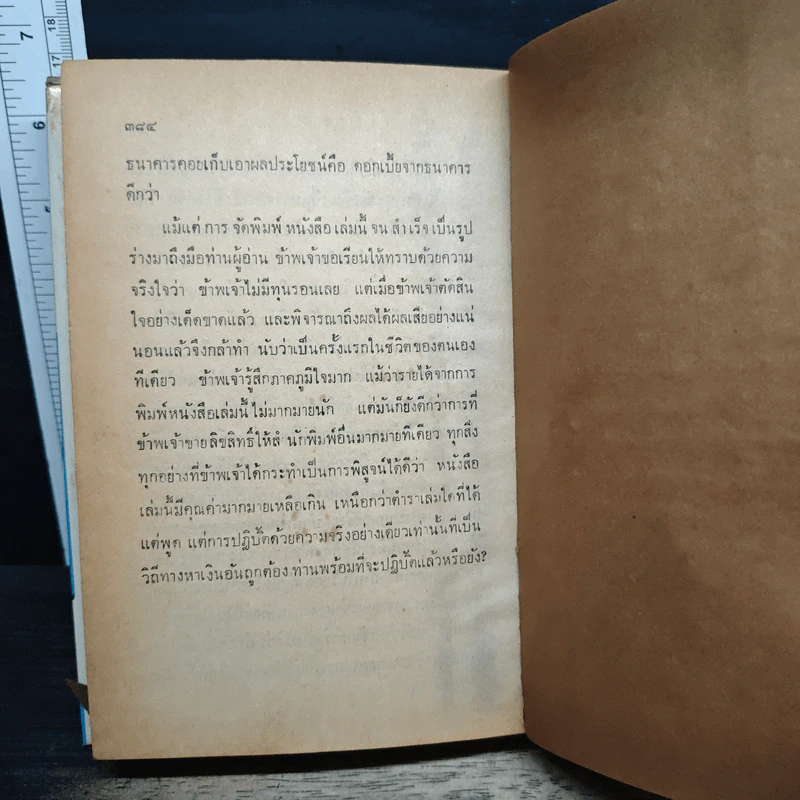 7
6
18
17
๓๘๔
ธนาคารคอยเก็บเอาผลประโยชน์คือ ดอกเบี้ยจากธนาคาร
ดีกว่า
แม้แต่ การ จัดพิมพ์ หนังสือ เล่มนี้ จน สำเร็จ เป็นรูป
ร่างมาถึงมือท่านผู้อ่าน ข้าพเจ้าขอเรียนให้ทราบด้วยความ
จริงใจว่า ข้าพเจ้าไม่มีทุนรอนเลย แต่เมื่อข้าพเจ้าตัดสิน
ใจอย่างเด็ดขาดแล้ว และพิจารณาถึงผลได้ผลเสียอย่างแน่
นอนแล้วจึงกล้าทำ นับว่าเป็นครั้งแรกในชีวิตของตนเอง
ทีเดียว ข้าพเจ้ารู้สึกภาคภูมิใจมาก แม้ว่ารายได้จากการ
พิมพ์หนังสือเล่มนี้ ไม่มากมายนัก แต่มันก็ยังดีกว่าการที่
ข้าพเจ้าขายลิขสิทธิ์ให้สำนักพิมพ์อื่นมากมายทีเดียว ทุกสิ่ง
ทุกอย่างที่ข้าพเจ้าได้กระทำเป็นการพิสูจน์ได้ดีว่า หนังสือ
เล่มนี้มีคุณค่ามากมายเหลือเกิน เหนือกว่าตำราเล่มใดที่ได้
แต่พูด แต่การปฏิบัติด้วยความจริงอย่างเดียวเท่านั้นที่เป็น
วิถีทางหาเงินอันถูกต้อง ท่านพร้อมที่จะปฏิบัติแล้วหรือยัง?